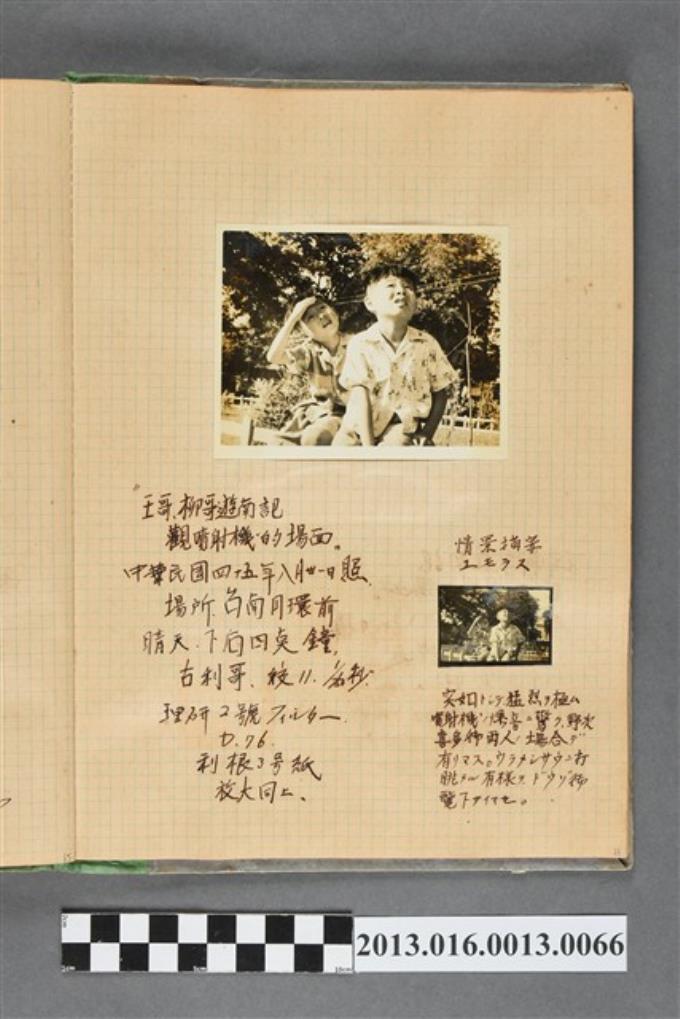 王哥、柳哥遊南記
觀噴射機的場面。
中華民國四十五年八月廿一日照
場所、台南円環前
晴天、下后四点鐘、
古利哥、絞11、
理研2號フィルター
D.76.
利根3号紙
放大同上、
情景描寫
ユモラス
突如トシテ猛烈ヲ極ム
噴射機ノ爆音ニ驚ク、野次
喜多御両人ノ場合デ
有リマス。ウラメシサウニ打
眺メル有様ヲ、ドウゾ御
覽下サイマセ。
2013.016.0013.0066